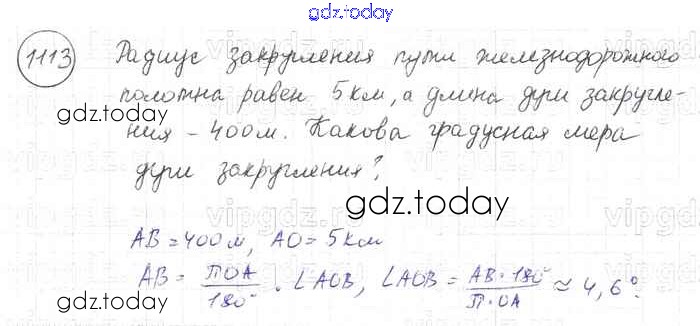 gdz.today
1113 Радиус закругления пути железнодорожного
полотна равен 5 км, а длина дуги закругле-
gdz.today
ния - 400 м. Какова градусная мера
дуги закругления?
gdz.today
AB = 400 м, AO = 5 км
AB = ПОА/180° · ∠AOB, ∠AOB = AB · 180°/П · ОА ≈ 4,6°.
gdz.today
gdz.today